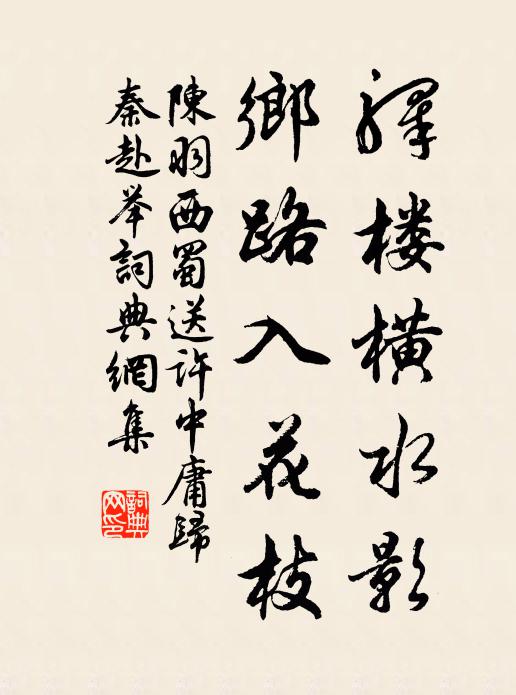 驛楼橫水影
鄉路入花枝
陳羽西蜀送許中庸歸
秦赴举詞典網集
詞典網印